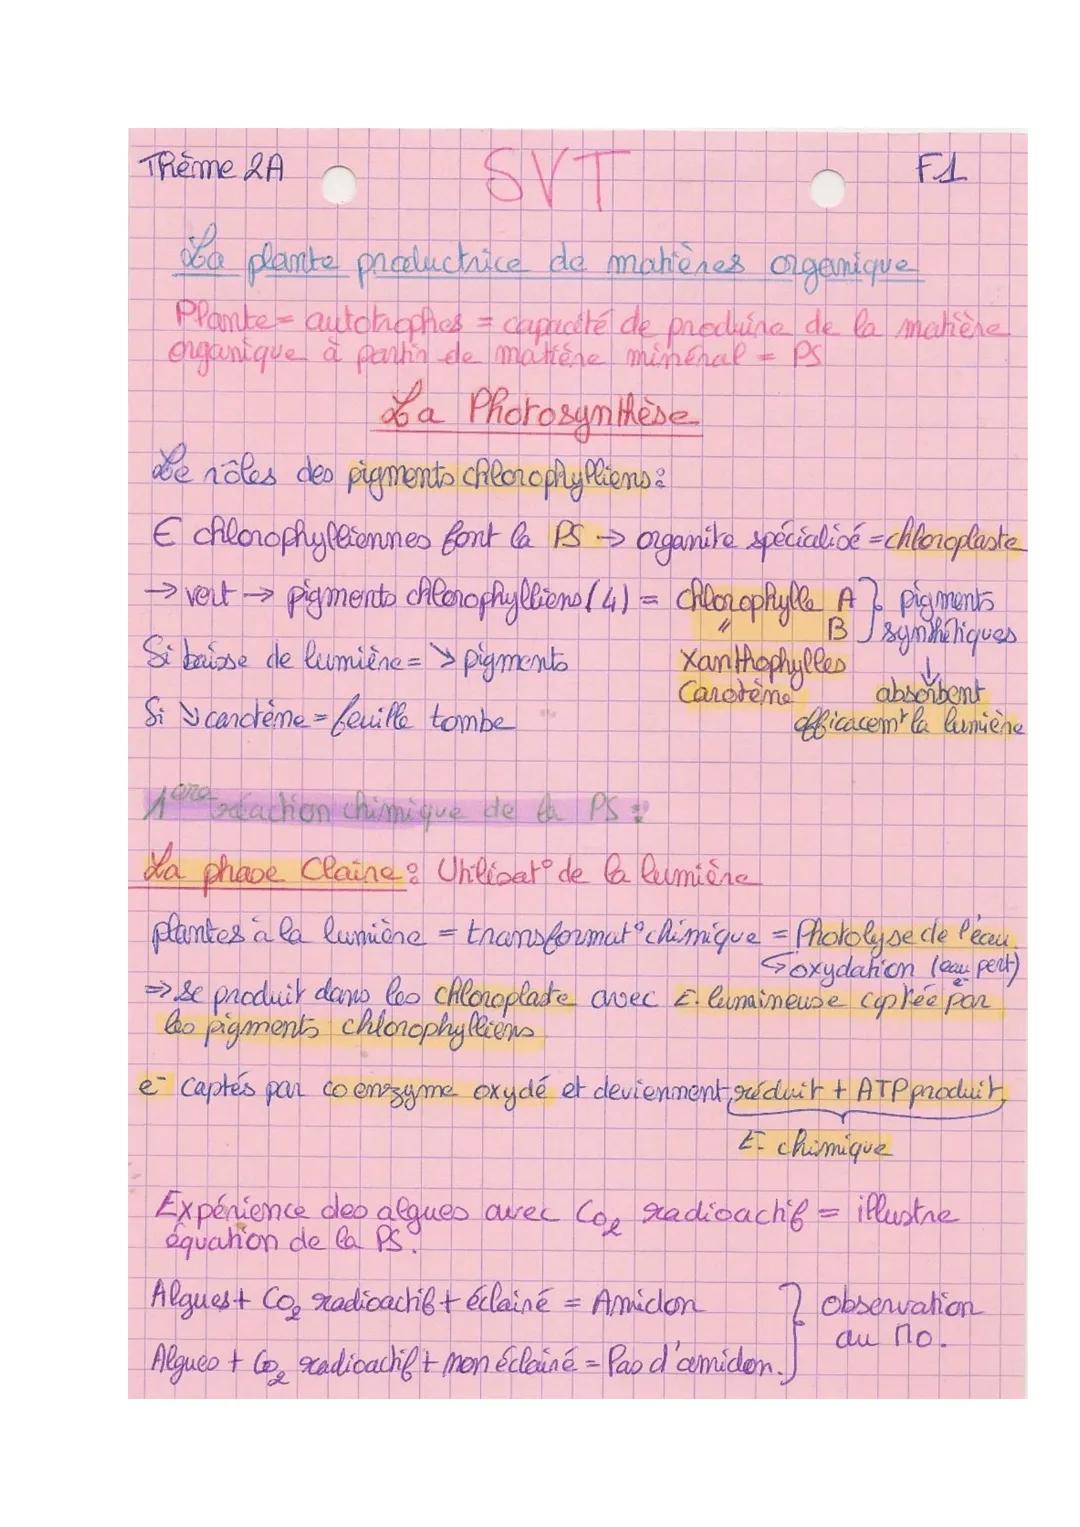 Thème 2A SVT F1
La plante productrice de matières organique
Plante = autotrophes = capacité de produire de la matière
organique à partir de matière minéral = PS
La Photosynthèse
Le rôles des pigments chlorophylliens :
€ chlorophylliennes font la PS → organite spécialisé = chloroplaste
→ vert → pigments chlorophylliens (4) = chlorophylle A } pigments
" B } synthétiques
Si baisse de lumière = ↘ pigments Xanthophylles ↓
Carotène absorbent
Si ↘ carotène = feuille tombe efficacemt la lumière
1ère réaction chimique de la PS :
La phase Claire : Utilisat° de la lumière
plantes à la lumière = transformat° chimique = Photolyse de l'eau
↪ oxydation (eau pert)
e-
⇒ se produit dans les chloroplaste avec E. lumineuse captée par
les pigments chlorophylliens
e- captés par coenzyme oxydé et deviennent réduit + ATP produit
E. chimique
Expérience des algues avec Co2 radioactif = illustre
équation de la PS.
Algues + Co2 radioactif + éclairé = Amidon } observation
au MO.
Algues + Co2 radioactif + non éclairé = Pas d'amidon.